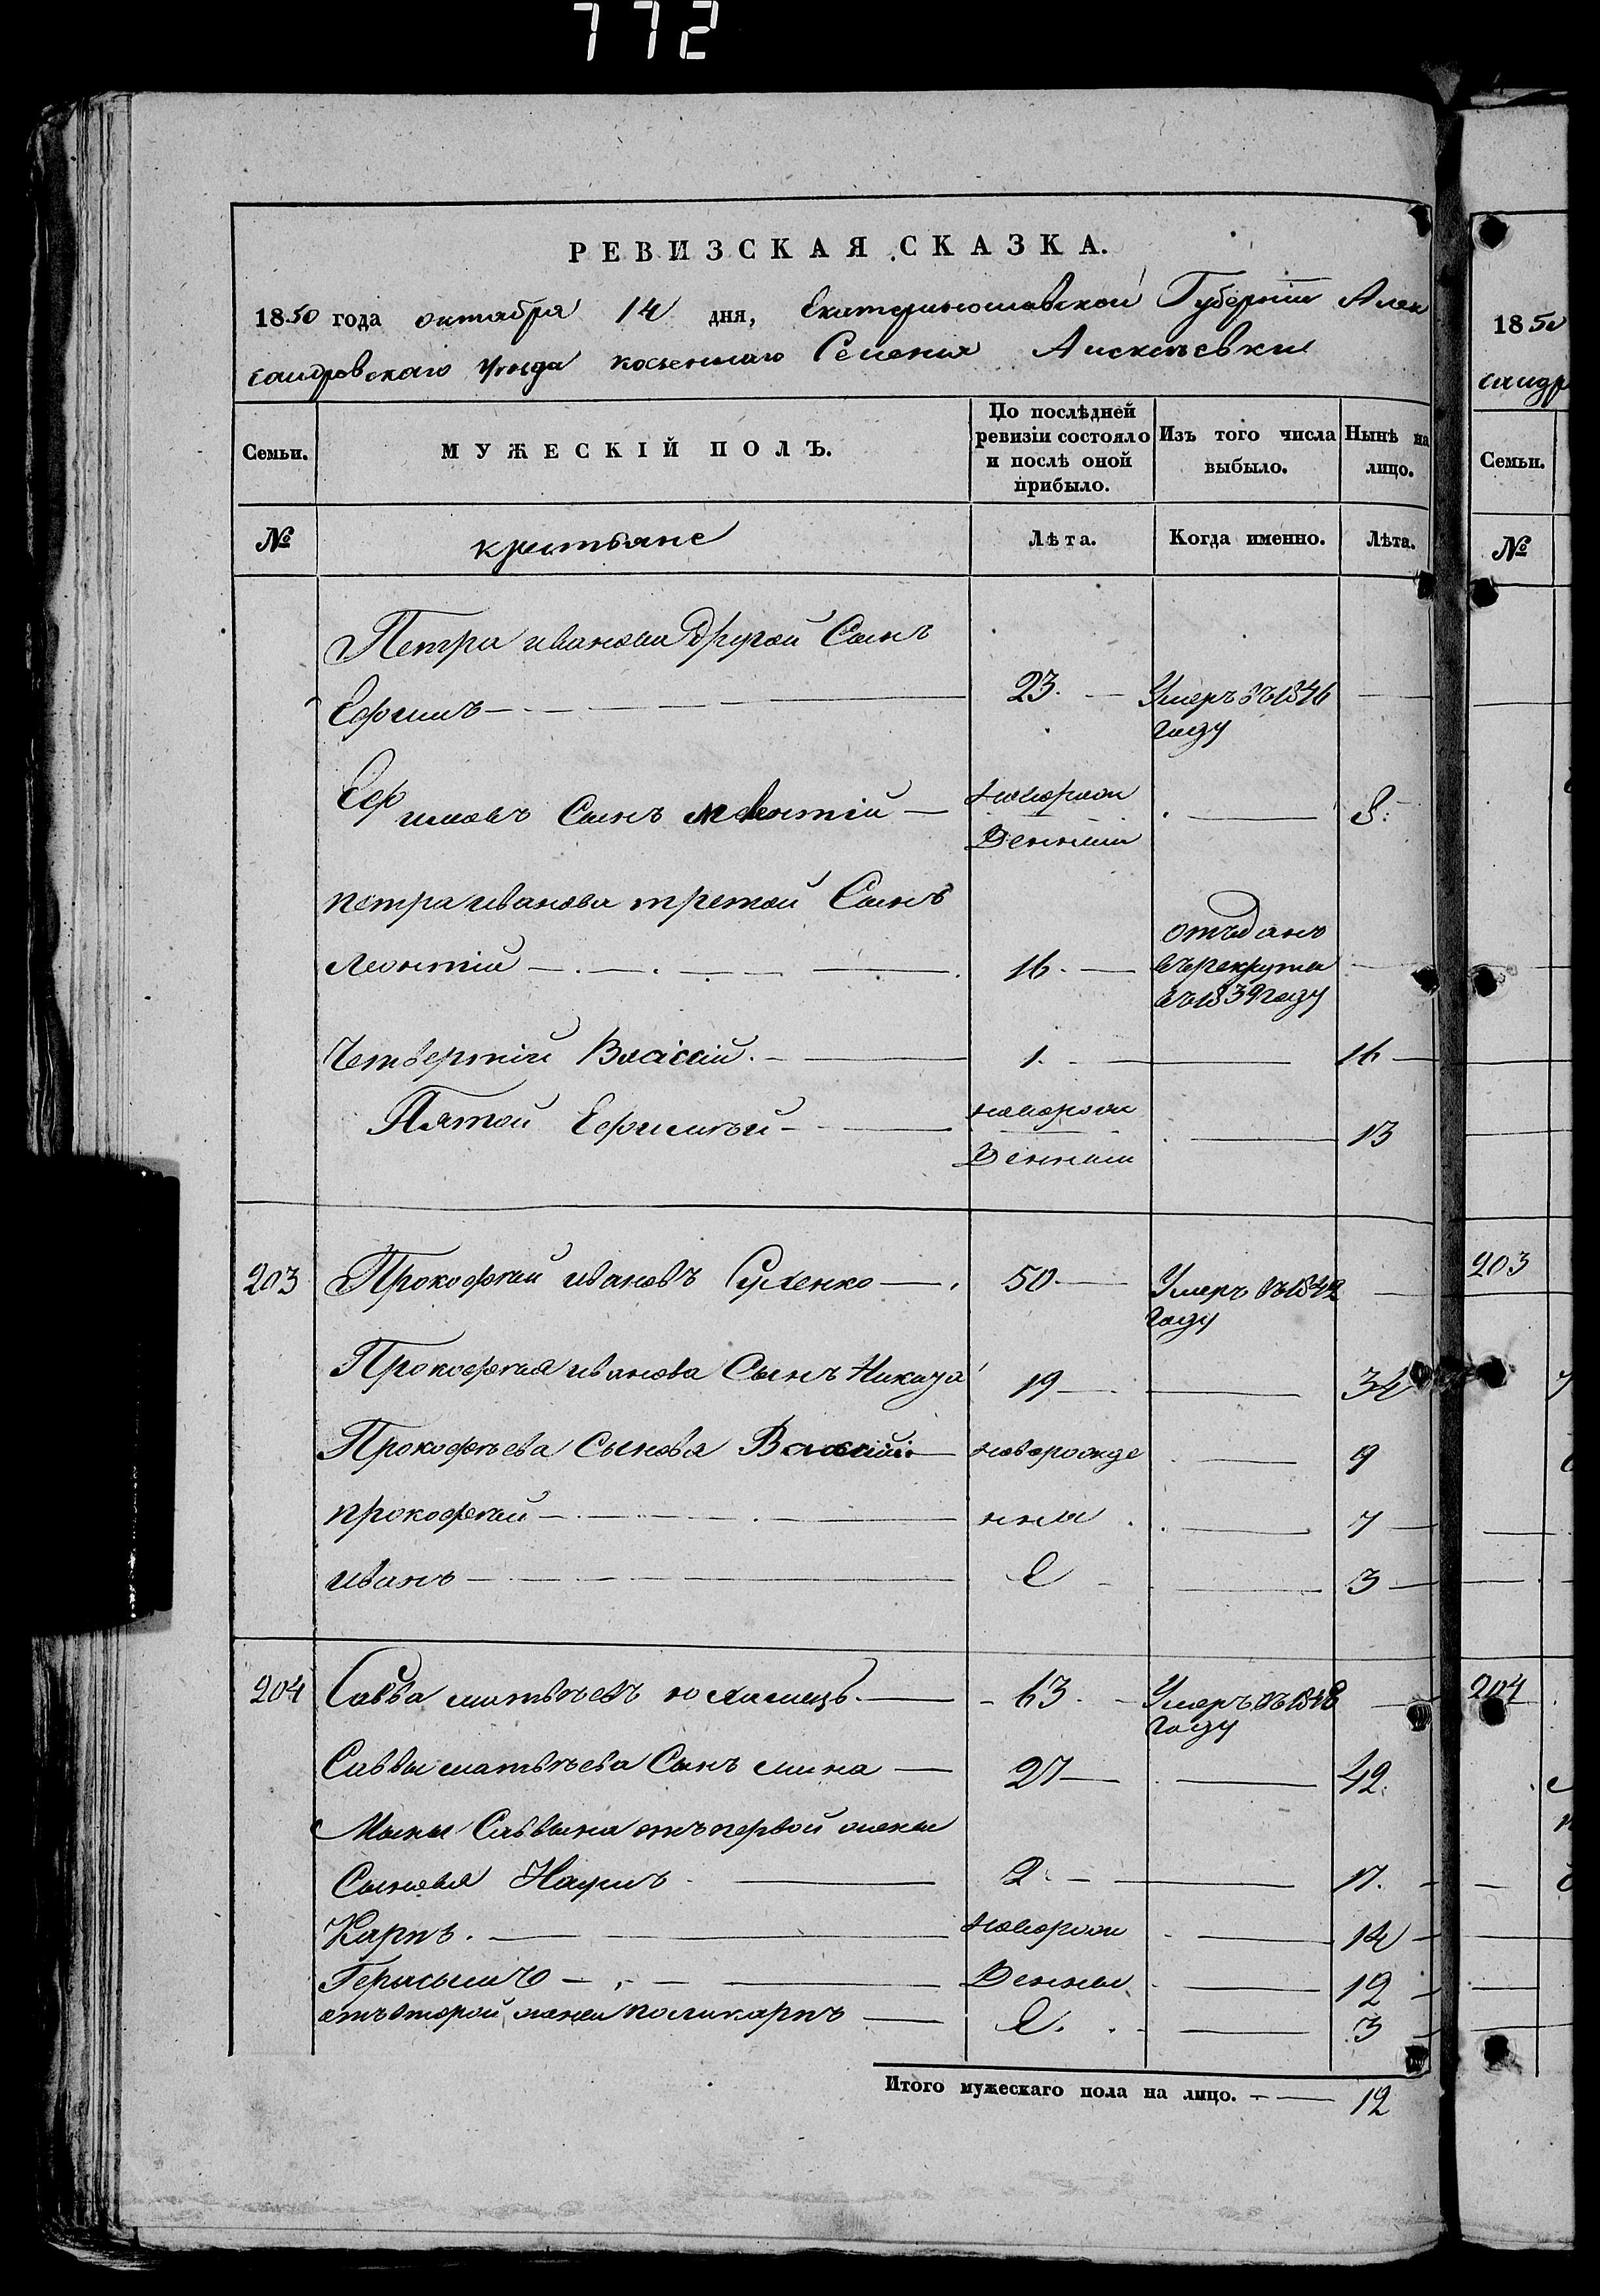 772
РЕВИЗСКАЯ СКАЗКА.
1850 года октября 14 дня, Екатеринославской Губернiи Алек
сандровскаго Уѣзда казеннаго Селенiя
Семьи. МУЖЕСКIЙ ПОЛЪ. По послѣдней ревизiи состояло и послѣ оной прибыло. Изъ того числа выбыло. Нынѣ на лицо.
№ крестьяне Лѣта. Когда именно. Лѣта.
Петра иванова другой Сынъ
Ефимъ 23. Умеръ въ 1846
году
Ефимовъ Сынъ леонтiй новорож 8.
денный
петра иванова третой Сынъ
леонтiй 16. отъданъ
въ рекруты
въ 1839 году
Четвертiй Власiй. 1. 16
Пятой Ефимъй новорож 13
денный
203 Прокофѣй ивановъ 50. Умеръ въ 1842
году
Прокофѣя иванова Сынъ Никита 19 34
Прокофѣева Сыновя Василiй новорожде 9
прокофѣй нны 7
иванъ 3
204 Савва матвѣевъ 63. Умеръ въ 1848
году
Саввы матвѣева Сынъ мина 27 42.
Мины Саввина отъ первой жены
Сыновя Наумъ 2. 17.
Карпъ. новорож 14
Герасимъ денны 12
отъ второй жены поликарпъ 3
Итого мужескаго пола на лицо. 12
1850
сандр
Семьи.
№
203
204